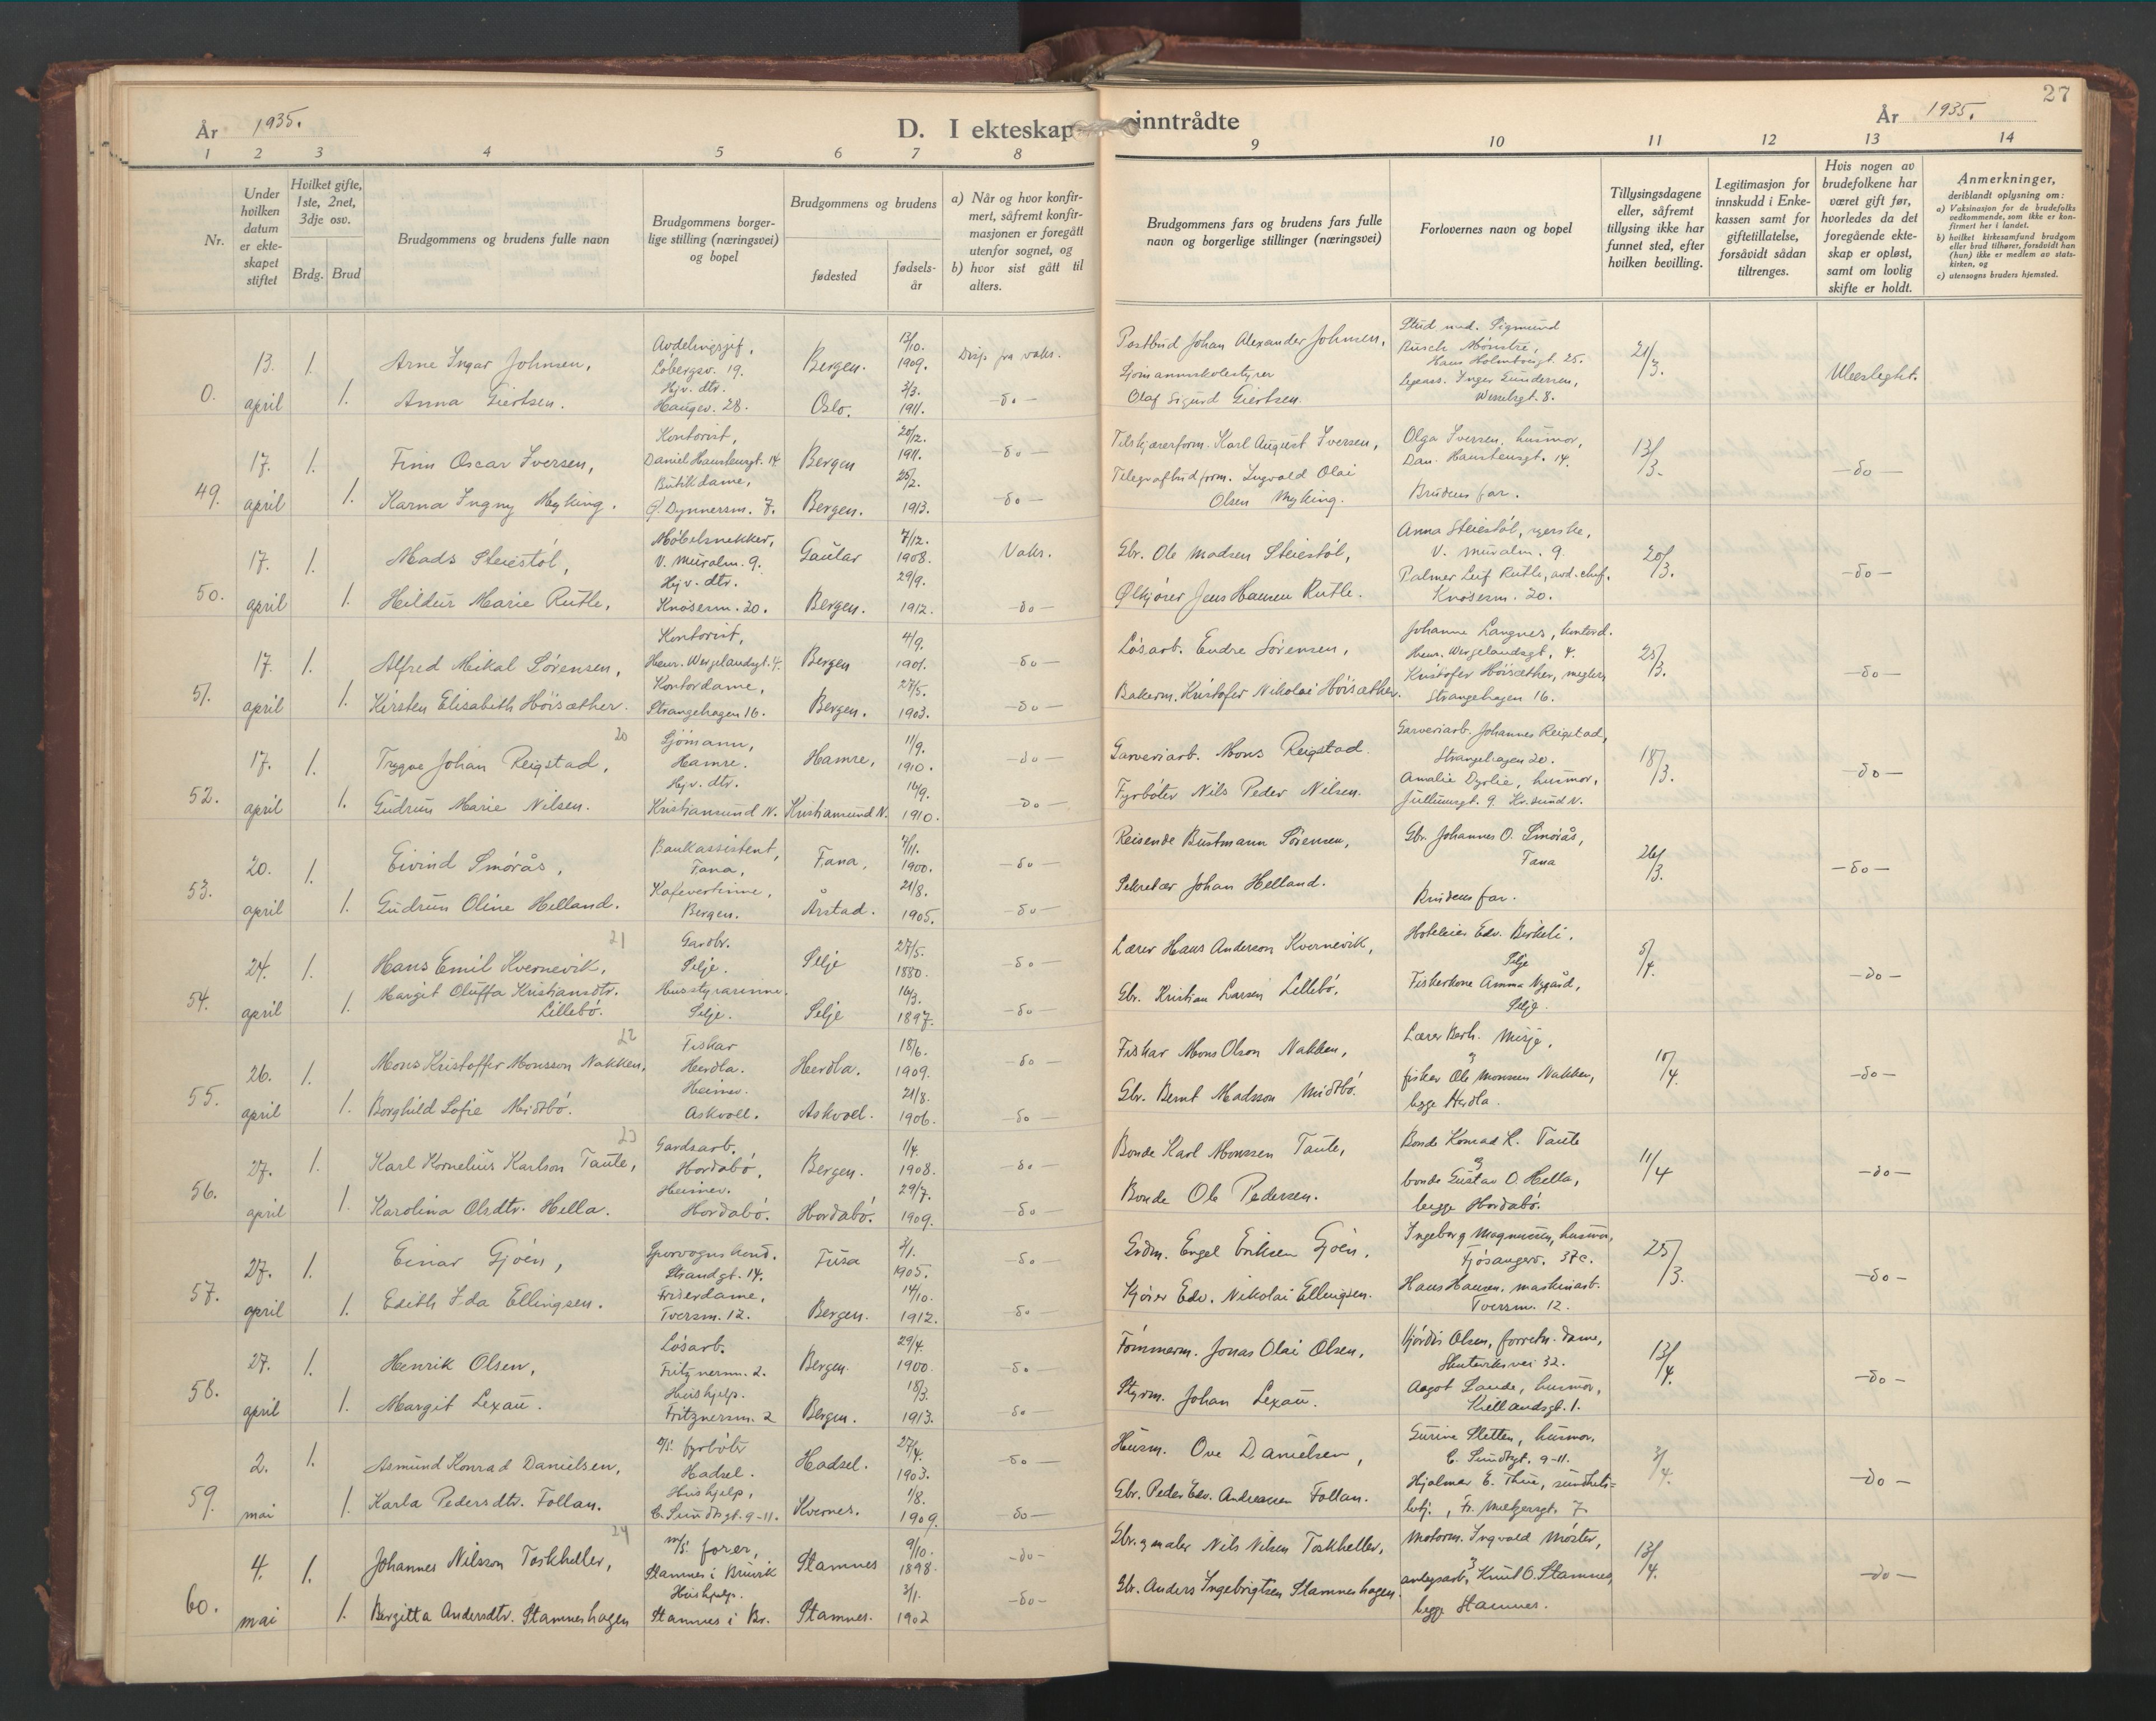 27
År 1935.
D. I ekteskap inntrådte
År 1935.
1 2 3 4 5 6 7 8 9 10 11 12 13 14
Nr.
Under hvilken datum er ekte-skapet stiftet
Hvilket gifte, 1ste, 2net, 3dje osv.
Brdg. Brud
Brudgommens og brudens fulle navn
Brudgommens borger-lige stilling (næringsvei) og bopel
Brudgommens og brudens
fødested
fødsels-år
a) Når og hvor konfir-mert, såfremt konfir-masjonen er foregått utenfor sognet, og
b) hvor sist gått til alters.
Brudgommens fars og brudens fars fulle navn og borgerlige stillinger (næringsvei)
Forlovernes navn og bopel
Tillysingsdagene eller, såfremt tillysing ikke har funnet sted, efter hvilken bevilling.
Legitimasjon for innskudd i Enke-kassen samt for giftetillatelse, forsåvidt sådan tiltrenges.
Hvis nogen av brudefolkene har været gift før, hvorledes da det foregående ekte-skap er opløst, samt om lovlig skifte er holdt.
Anmerkninger,
deriblandt oplysning om:
a) Vaksinasjon for de brudefolks vedkommende, som ikke er kon-firmert her i landet.
b) hvilket kirkesamfund brudgom eller brud tilhører, forsåvidt han (hun) ikke er medlem av stats-kirken, og
c) utensogns bruders hjemsted.
0. 13. april 1. 1.
Arne Ingar Johnsen,
Avdelingssjef, Løbergsv. 19.
Bergen. 13/10. 1909.
Disp. fra vaks.
Postbud Johan Alexander Johnsen,
Stud. med. Sigmund Rusch Mønstre, Haus Holmboesgt. 25.
21/3.
Ubeslægt.
Anna Giertsen.
Hjv. dtr. Haugev. 28.
Oslo. 3/3. 1911.
-do-
Sjømannsskolestyrer Olaf Sigurd Giertsen.
Inger Gundersen, Wesselsgt. 8.
49. 17. april 1. 1.
Finn Oscar Iversen,
Kontorist, Daniel Hansensgt. 14
Bergen 20/12. 1911.
-do-
Tilskjærerform. Karl August Iversen,
Olga Iversen, husmor, Dan. Hansensgt. 14.
13/3.
-do-
Karna Ingny Myking.
Butikdame, Dynnersm. 7.
Bergen. 25/2. 1913.
-do-
Telegrafbudform. Ingvald Olai Olsen Myking.
Brudens far.
50. 17. april 1. 1.
Mads Steiestøl,
Møbelsnekker, V. Muralm. 9.
Gaular 7/12. 1908.
Vaks.
Gbr. Ole Madsen Steiestøl,
Anna Steiestøl, V. Muralm. 9.
20/3.
-do-
Hildur Marie Rutle,
Hjv. dtr. Knøsesm. 20.
Bergen. 29/9. 1912.
-do-
Ølkjører Jens Hansen Rutle.
Palmer Leif Rutle, avd. chef, Knøsesm. 20.
51. 17. april 1. 1.
Alfred Mikal Sørensen,
Kontorist, Henr. Wergelandsgt. 4.
Bergen 4/9. 1901.
-do-
Løsarb. Endre Sørensen,
Johanne Langnes, kontord. Henr. Wergelandsgt. 4.
25/3.
-do-
Kirsten Elisabeth Høisæther.
Kontordame, Strangehagen 16.
Bergen. 27/5. 1903.
-do-
Bakerm. Kristofer Nikolai Høisæther.
Kristofer Høisæther, megler, Strangehagen 16.
20
52. 17. april 1. 1.
Trygve Johan Reigstad,
Sjømann, Hamre.
Hamre, 11/9. 1910.
-do-
Garveriarb. Mons Reigstad.
Garveriarb. Johannes Reigstad, Strangehagen 20.
18/3.
-do-
Gudrun Marie Nilsen.
Hjv. dtr. Kristiansund N.
Kristiansund N. 16/9. 1910.
-do-
Fyrbøter Nils Peder Nilsen.
Amalie Dyrlie, husmor, Kr. sund N.
53. 20. april 1. 1.
Eivind Smørås,
Bankassistent, Fana,
Fana, 7/11. 1900.
-do-
Reisende Bustmann Sørensen,
Gbr. Johannes O. Smørås, Fana
26/3.
-do-
Gudrun Oline Helland.
Kafevertinne, Bergen.
Årstad. 21/8. 1905.
-do-
Sekretær Johan Helland.
Brudens far.
21
54. 24. april 1. 1.
Hans Emil Kvernevik,
Gardbr. Selje.
Selje 27/5. 1880.
-do-
Lærer Hans Anderson Kvernevik,
Hoteleier Edv. Birkeli, Selje
5/4.
-do-
Margit Oluffa Kristiansdtr. Lillebø.
Husstyrarinne. Selje.
Selje 16/3. 1897.
-do-
Gbr. Kristian Larsen Lillebø.
Fiskerkone Anna Nygård, Selje.
22
55. 26. april 1. 1.
Mons Kristoffer Monsson Nakken,
Fiskar Herdla.
Herdla. 18/6. 1909.
-do-
Fiskar Mons Olson Nakken,
Lærer Berh. Misje, og fisker Ole Monsen Nakken, begge Herdla.
10/4.
-do-
Borghild Sofie Midtbø.
Heimev. Askvoll.
Askvoll. 21/8. 1906.
-do-
Gbr. Bernt Madsson Midtbø.
23
56. 27. april 1. 1.
Karl Kornelius Karlson Taule,
Gardsarb. Hordabø,
Bergen. 1/4. 1908.
-do-
Bonde Karl Monssen Taule,
Bonde Konrad K. Taule og bonde Gustav O. Hella, begge Hordabø.
11/4
-do-
Karolina Olsdtr. Hella.
Heimev. Hordabø.
Hordabø. 29/7. 1909.
-do-
Bonde Ole Pedersen.
57. 27. april 1. 1.
Einar Gjøen,
Sporvognskond. Strandgt. 14.
Fusa 3/1. 1905.
-do-
Grdm. Engel Eriksen Gjøen,
Ingeborg Magnussen, husmor, Fjøsangerv. 37c.
25/3.
-do-
Edith Ida Ellingsen.
Frisørdame, Tversm. 12.
Bergen. 14/10. 1912.
do-
Kjører Edv. Nikolai Ellingsen.
Hans Hansen, maskinarb. Tversm. 12.
58. 27. april 1. 1.
Henrik Olsen,
Løsarb. Fritznersm. 2.
Bergen. 29/4. 1900.
-do-
Tømmerm. Jonas Olai Olsen,
Hjørdis Olsen, forretn. dame, 32.
13/4.
-do-
Margit Lexau.
Hushjelp. Fritznersm. 2
Bergen. 18/3. 1913.
-do-
Styrm. Johan Lexau.
Aagot Lande, husmor, Kiellandsgt. 1.
59. 2. mai 1. 1.
Asmund Konrad Danielsen,
fyrbøter Hadsel.
Hadsel. 27/4. 1903.
-do-
Husm. Ove Danielsen,
Gurine Sletten, husmor, C. Sundtsgt. 9-11.
3/4.
-do-
Karla Pedersdtr. Follan.
Hushjelp, C. Sundtsgt. 9-11.
Kvernes. 1/8. 1909.
-do-
Gbr. Peder Edv. Andreassen Follan.
Hjalmar E. Thue, 7
24
60. 4. mai 1. 1.
Johannes Nilsson Toskheller,
m/s. fører, Stamnes i Bruvik
Stamnes 9/10. 1898.
-do-
Gbr. og maler Nils Nilsen Toskheller,
Motorm. Ingvald Møster, og anlegsarb. Knut O. Stamnes, begge Stamnes.
13/4.
-do-
Bergitta Andersdtr. Stamneshagen
Hushjelp. Stamnes i Br.
Stamnes. 3/1. 1902
-do-
Gbr. Anders Ingebrigtsen Stamneshagen.